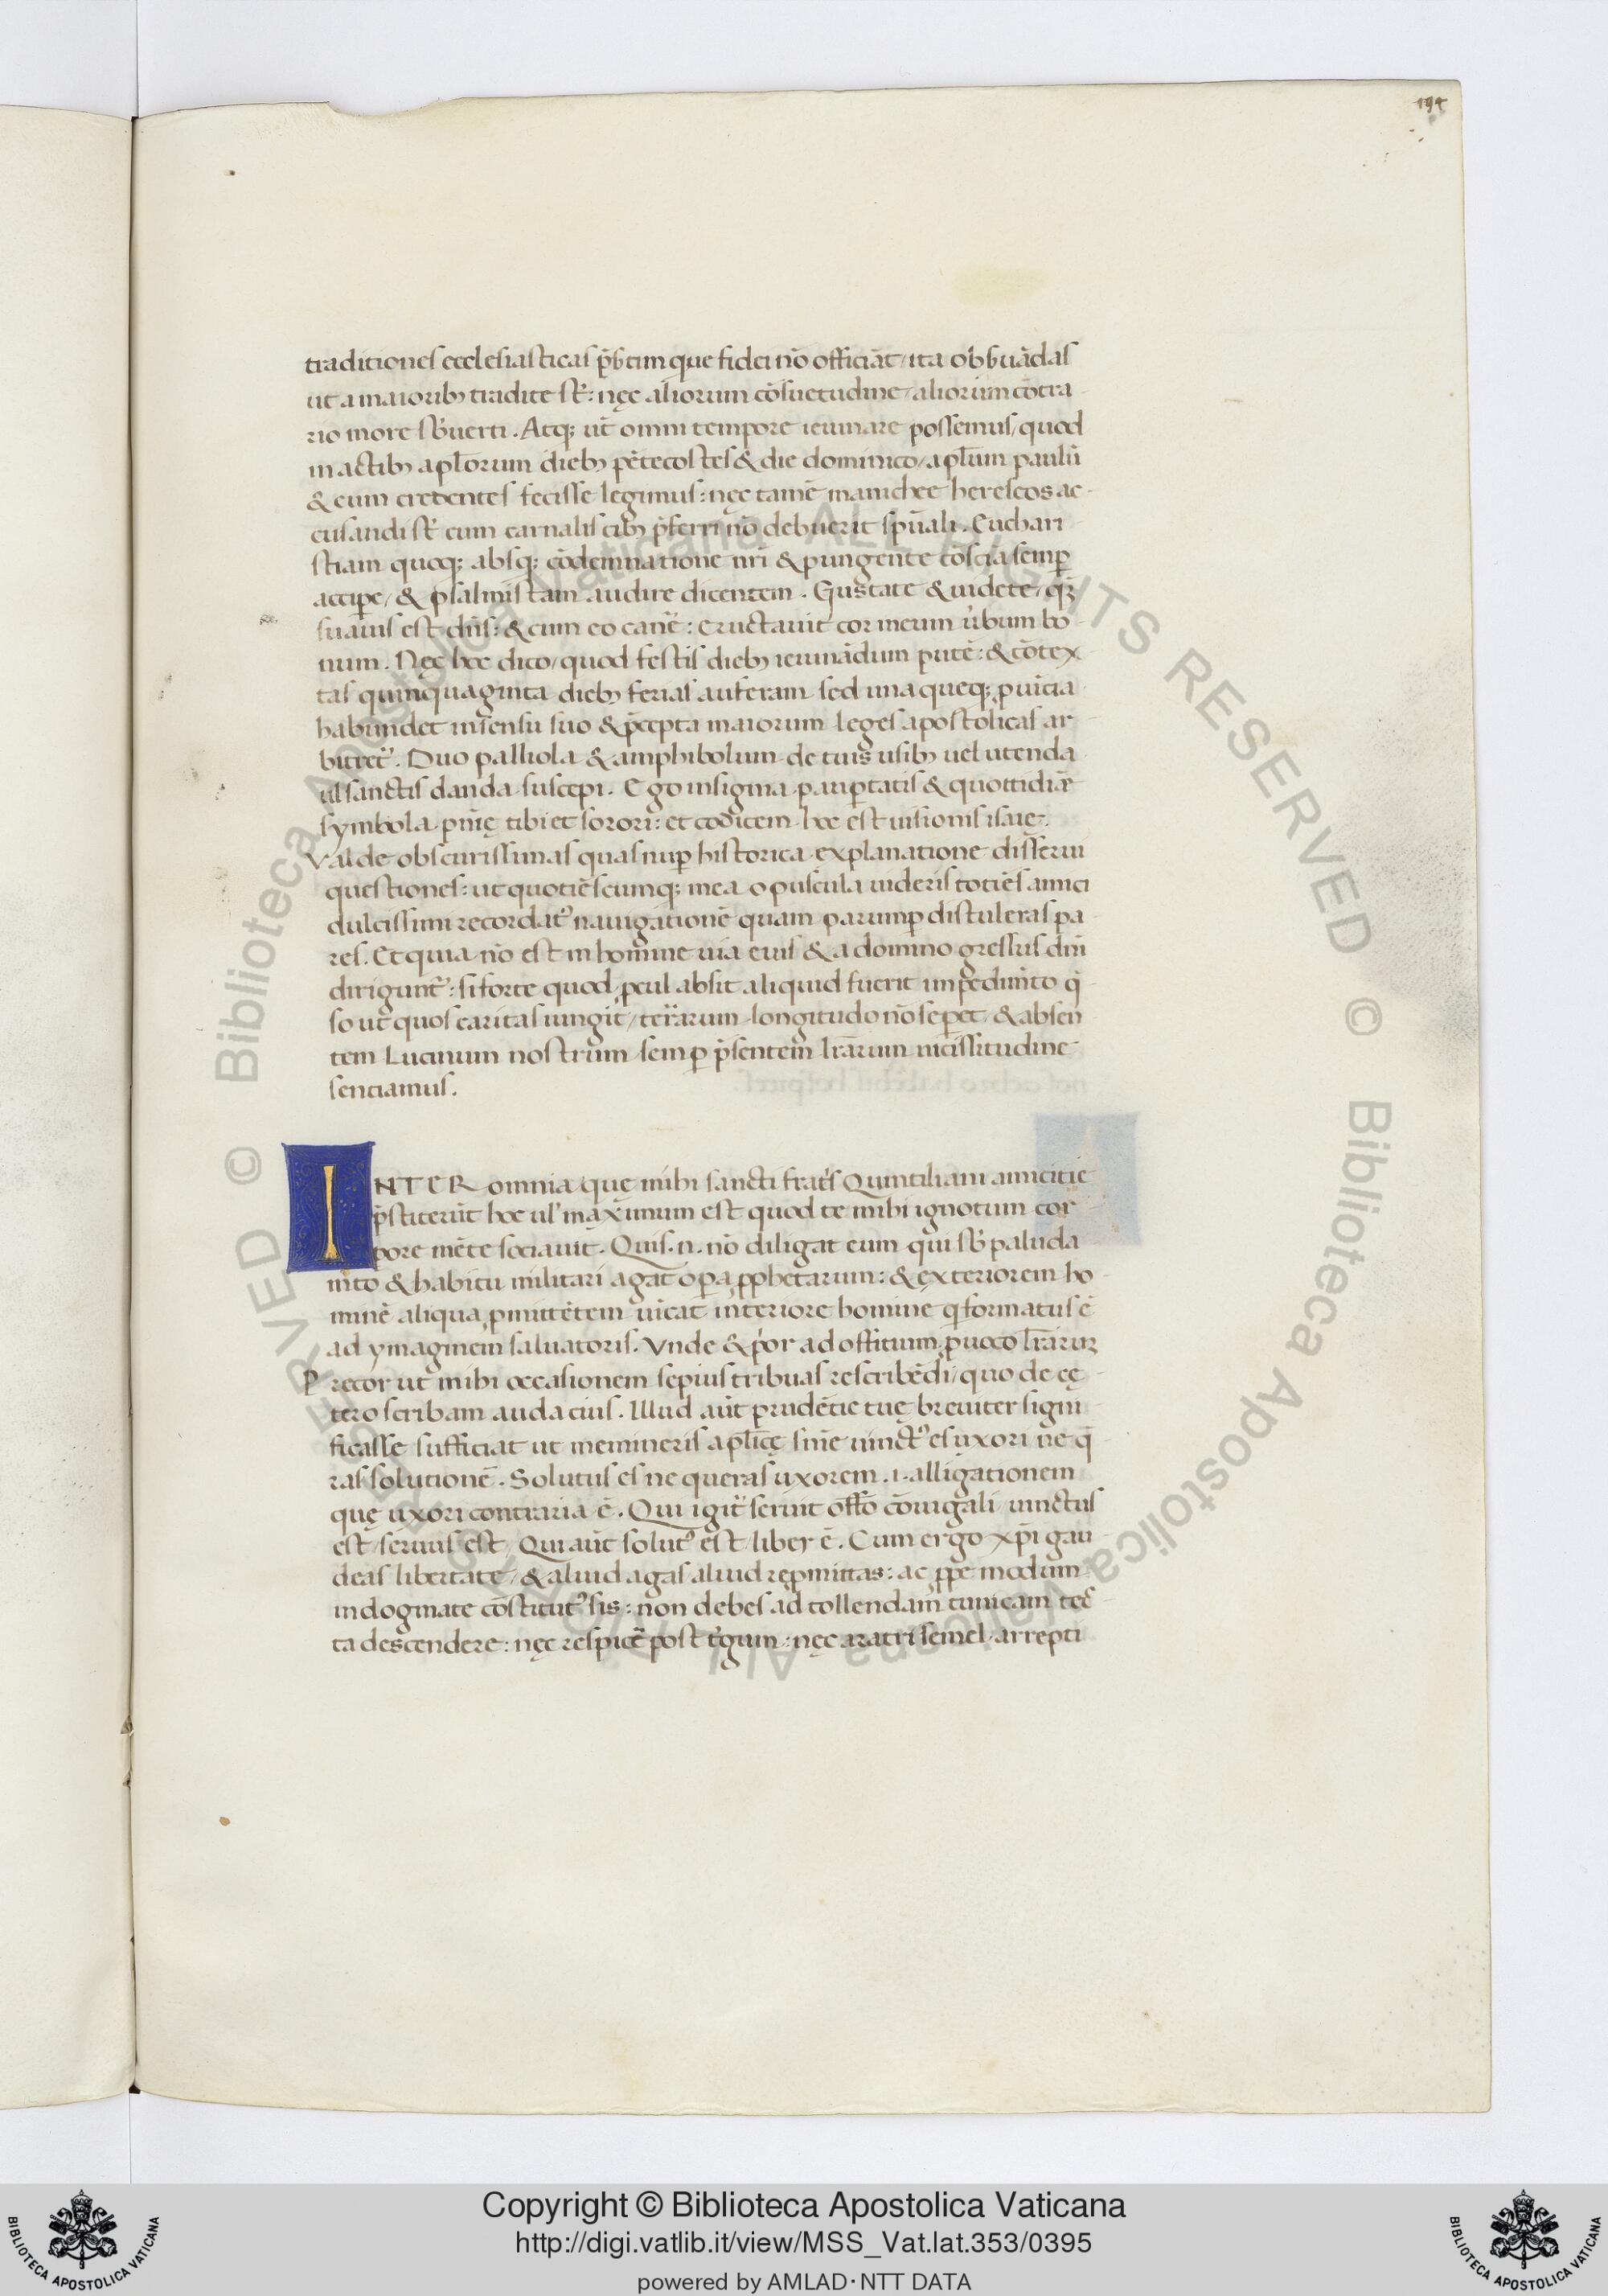 194
traditiones ecclesiasticas p̄sertim que fidei nō officiāt / ita obseruādas
ut a maiorib; tradite st̄: nęc aliorum cōsuetudine / aliorum cōtra-
rio more sb̄uerti. Atq; ut̄ omni tempore ieiunare possemus / quod
in actib; apl̄orum dieb; pētecostes & die dominico / apl̄um paulū
& cum credentes fecisse legimus: nęc tamē manichee hereseos ac-
cusandi st̄ cum carnalis cib; p̄ferri nō debuerit spūali. Euchari
stiam quoq; absq; cōdemnatione nr̄i & pungente cōscīa semp̄
accipe / & psalmistam audire dicentem. Gustate & uidete / q̄
suauis est dn̄s: & cum eo canē: eructauit cor meum u̓bum bo-
num. Nęc hoc dico / quod festis dieb; ieiunādum putē: & cōtex
tas quinquaginta dieb; ferias auferam. sed una queq; ꝓuīcia
habundet in sensu suo & p̄cepta maiorum leges apostolicas ar-
bitret̄. Duo palliola & amphibolum de tuis usib; uel utenda
ul̓ sanctis danda suscepi. Ego insignia paup̄tatis & quottidiā
symbola pn̄ię tibi et sorori: et codicem hoc est uisionis isaię.
Valde obscurissimas quas nup̄ historica explanatione disserui
questiones: ut quotiēscumq; mea opuscula uideris totiēs amici
dulcissimi recordat̓ nauigationē quam parump̄ distuleras pa-
res. Et quia nō est in homine uia eius & a domino gressus dn̄i
dirigunt̄: si forte quod ꝓcul absit aliquid fuerit impedimto q̄-
so ut̄ quos caritas iungit / terrarum longitudo nō sepet / & absen-
tem Lucinum nostrum semp̄ p̄sentem lr̄arum uicissitudine
sentiamus.
INTER omnia quę mihi sancti frat̓s Quintiliani amicitię
p̄stiterūt hoc ul̓ maximum est quod te mihi ignotum cor-
pore mēte sociauit. Quis .n. nō diligat eum qui sb̄ paluda-
mto & habitu militari agat opa ꝓphetarum: & exteriorem ho-
minē aliqua ꝓmittētem uīcat interiore homine q̓ formatus ē
ad ymaginem saluatoris. Vnde & p̓or ad offitium ꝓuoco lr̄arum
Precor ut̄ mihi occasionem sepius tribuas rescribēdi / quo de cę-
tero scribam audacius. Illud aūt prudētie tuę breuiter signi
ficasse sufficiat ut memineris apl̄icę snīe uinct̓ es uxori ne q̄-
ras solutionē. Solutus es ne queras uxorem .i. alligationem
quę uxori contraria ē. Qui igit̄ seruit offō cōiugali uinctus
est / seruus est / Qui aūt solut̓ est / liber ē. Cum ergo xp̄i gau
deas libertate / & aliud agas aliud repmittas: ac ꝓpe modum
in dogmate cōstitut̓ sis: non debes ad tollendam tunicam tec̄
ta descendere: nęc respicē post t̓gum: nęc aratri semel arrepti
Copyright © Biblioteca Apostolica Vaticana
http://digi.vatlib.it/view/MSS_Vat.lat.353/0395
powered by AMLAD·NTT DATA